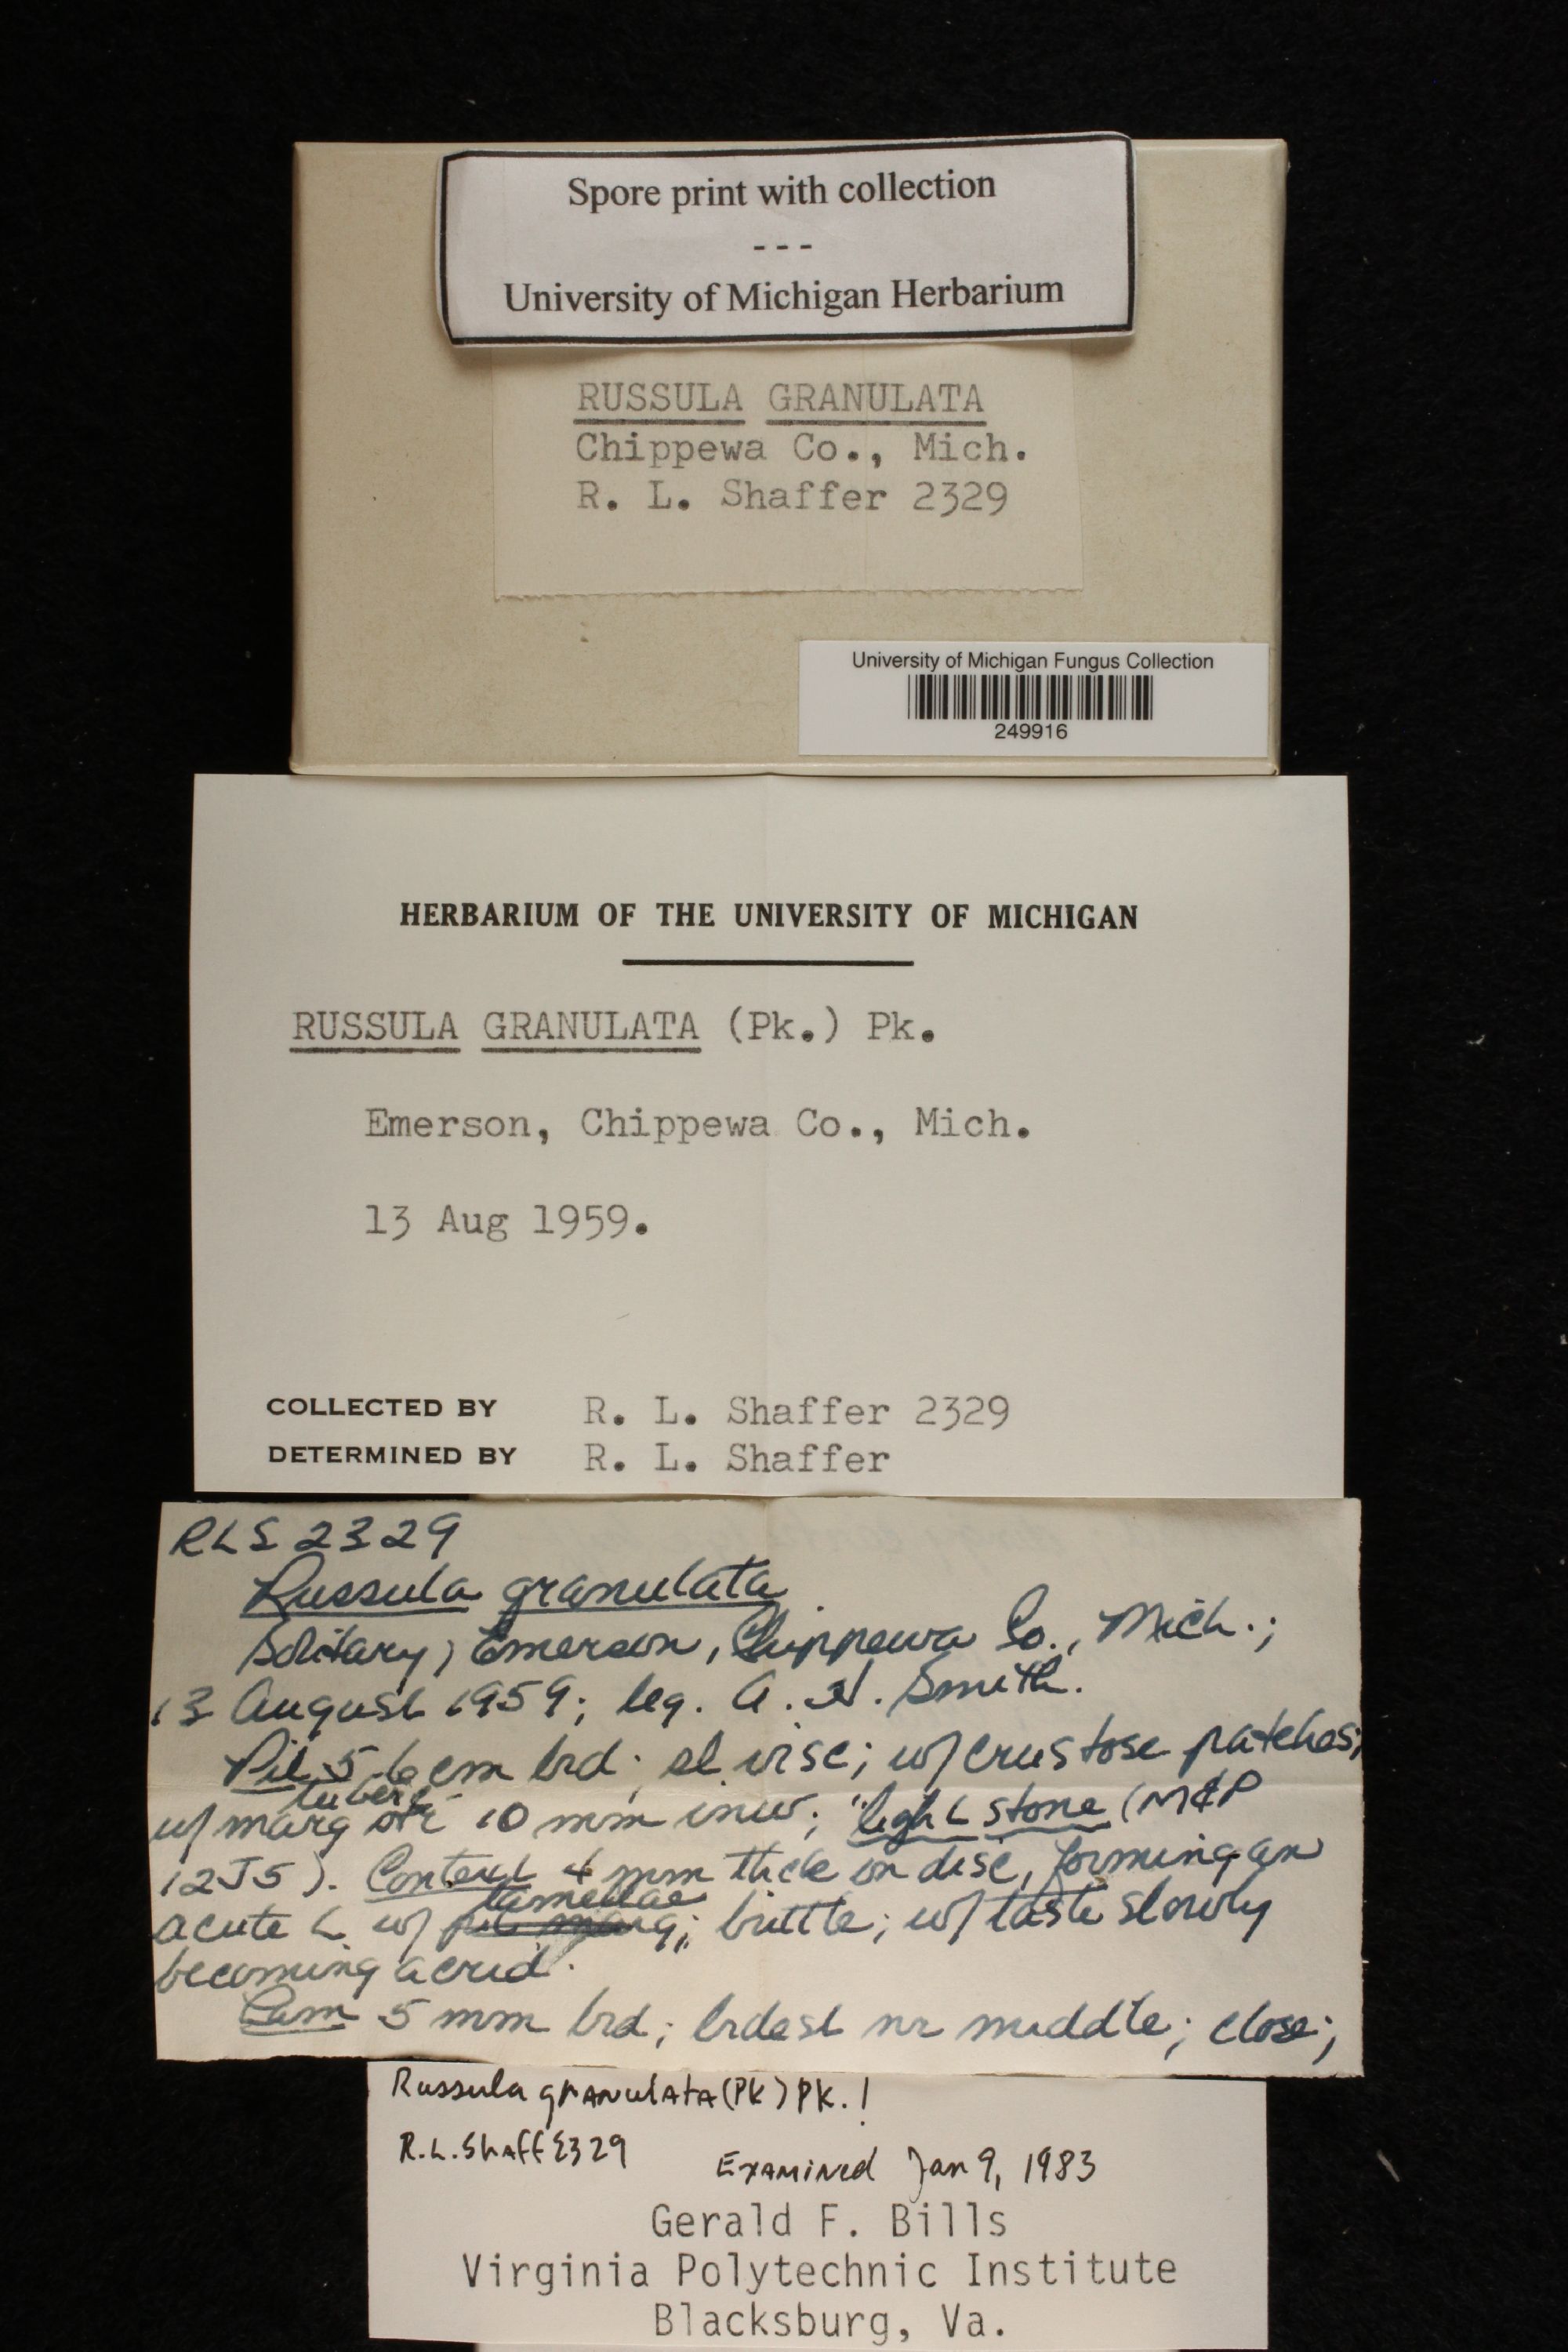 Spore print with collection
---
University of Michigan Herbarium
RUSSULA GRANULATA
Chippewa Co., Mich.
R. L. Shaffer 2329
University of Michigan Fungus Collection
249916
HERBARIUM OF THE UNIVERSITY OF MICHIGAN
RUSSULA GRANULATA (Pk.) Pk.
Emerson, Chippewa Co., Mich.
13 Aug 1959.
COLLECTED BY R. L. Shaffer 2329
DETERMINED BY R. L. Shaffer
RLS 2329
Russula granulata
Solitary; Emerson, Chippewa Co., Mich.;
13 August 1959; leg. A. H. Smith.
Pil 5-6 cm brd; sl visc; w/ crustose patches;
tuberc
w/ marg str 10 mm inw; "light stone" (M&P
12J5). Context 4 mm thick on disc, forming an
lamellae
acute L w/ pil marg; brittle; w/ taste slowly
becoming acrid.
Lam 5 mm brd; brdest nr middle; close;
Russula granulata (PK) PK. !
R.L. Shaff 2329 Examined Jan 9, 1983
Gerald F. Bills
Virginia Polytechnic Institute
Blacksburg, Va.